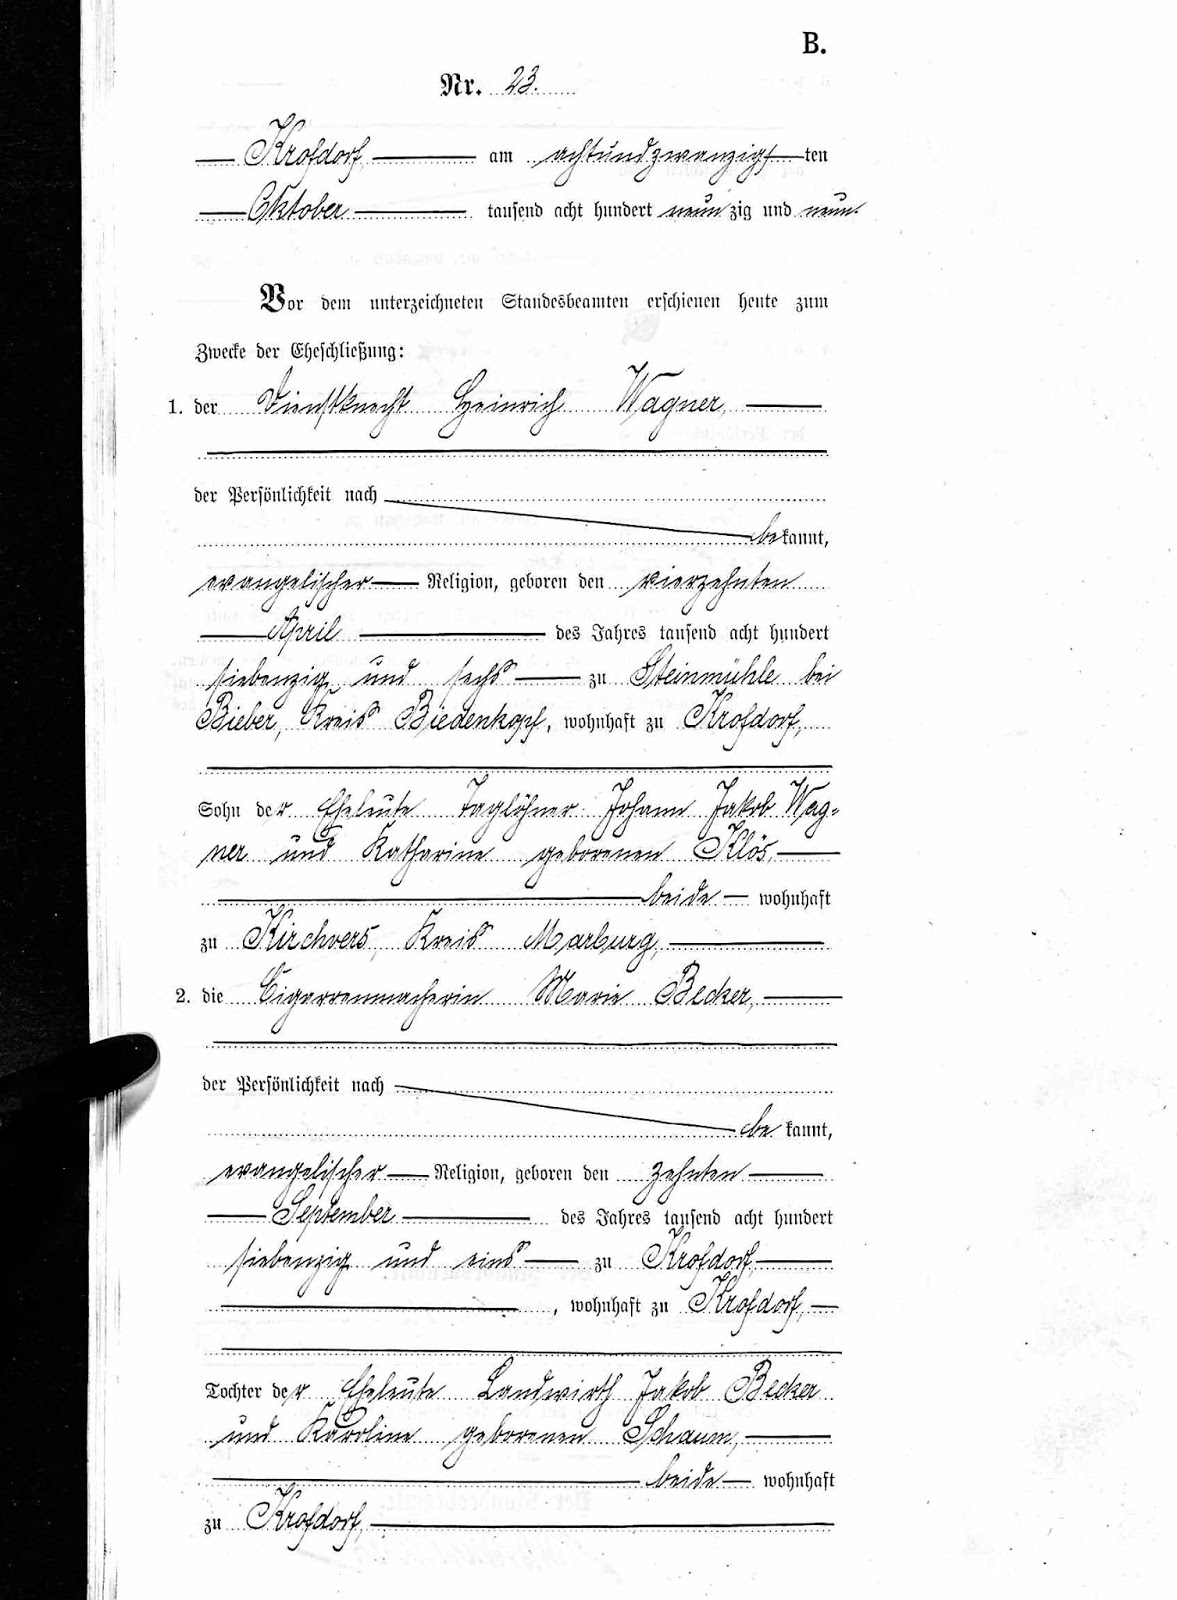 B.
Nr. 23.
Krofdorf, am achtundzwanzigsten
Oktober tausend acht hundert neunzig und neun.
Vor dem unterzeichneten Standesbeamten erschienen heute zum
Zwecke der Eheschließung:
1. der Dienstknecht Heinrich Wagner,
der Persönlichkeit nach
bekannt,
evangelischer Religion, geboren den vierzehnten
April des Jahres tausend acht hundert
siebenzig und sechs zu Steinmühle bei
Bieber, Kreis Biedenkopf, wohnhaft zu Krofdorf,
Sohn der Eheleute Taglöhner Johann Jakob Wag-
ner und Katharine geborenen Klös,
beide wohnhaft
zu Kirchvers, Kreis Marburg,
2. die Cigarrenmacherin Marie Becker,
der Persönlichkeit nach
bekannt,
evangelischer Religion, geboren den zehnten
September des Jahres tausend acht hundert
siebenzig und eins zu Krofdorf,
, wohnhaft zu Krofdorf,
Tochter der Eheleute Landwirth Jakob Becker
und Karoline geborenen Schaum,
beide wohnhaft
zu Krofdorf,